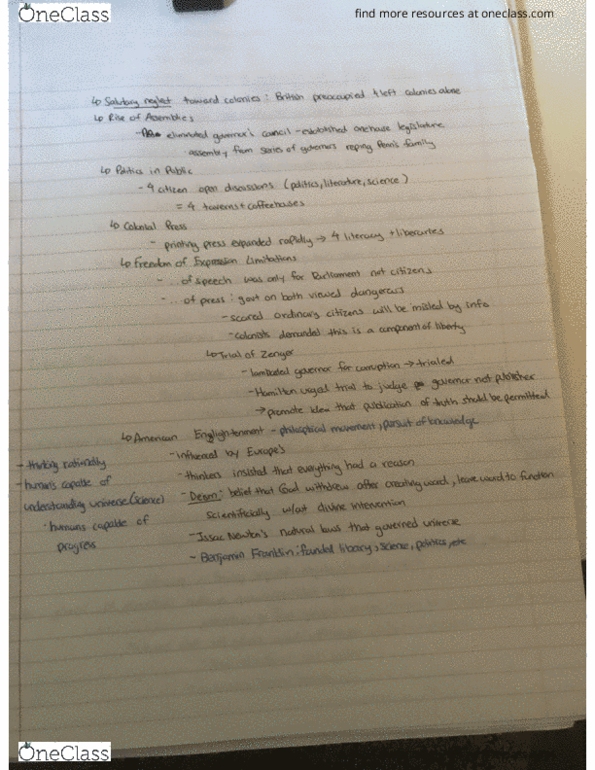 OneClass
find more resources at oneclass.com
↳ Salutary neglect toward colonies: British preoccupied + left colonies alone
↳ Rise of Assemblies
eliminated governor's council - established onehouse legislature
assembly from series of governors reping Penn's family
↳ Politics in Public
- ↑ citizen open discussions (politics, literature, science)
= ↑ taverns + coffeehouses
↳ Colonial Press
- printing press expanded rapidly → ↑ literacy + libraries
↳ Freedom of Expression Limitations
- ... of speech was only for Parliament not citizens
- ... of press: govt on both viewed dangerous
- scared ordinary citizens will be misled by info
- colonists demanded this is a component of liberty
↳ Trial of Zenger
- lambasted governor for corruption → trialed
- Hamilton urged trial to judge governor not publisher
→ promote idea that publication of truth should be permitted
↳ American Englightenment - philosphical movement, pursuit of knowledge
- influenced by Europe's
- thinkers insisted that everything had a reason
- Deism: belief that God withdrew after creating word, leave word to function
scientifically w/out divine intervention
- Issac Newton's natural laws that governed universe
- Benjamin Franklin: founded library, science, politics, etc
- thinking rationally
- humans capable of
understanding universe (science)
- humans capable of
progress
OneClass